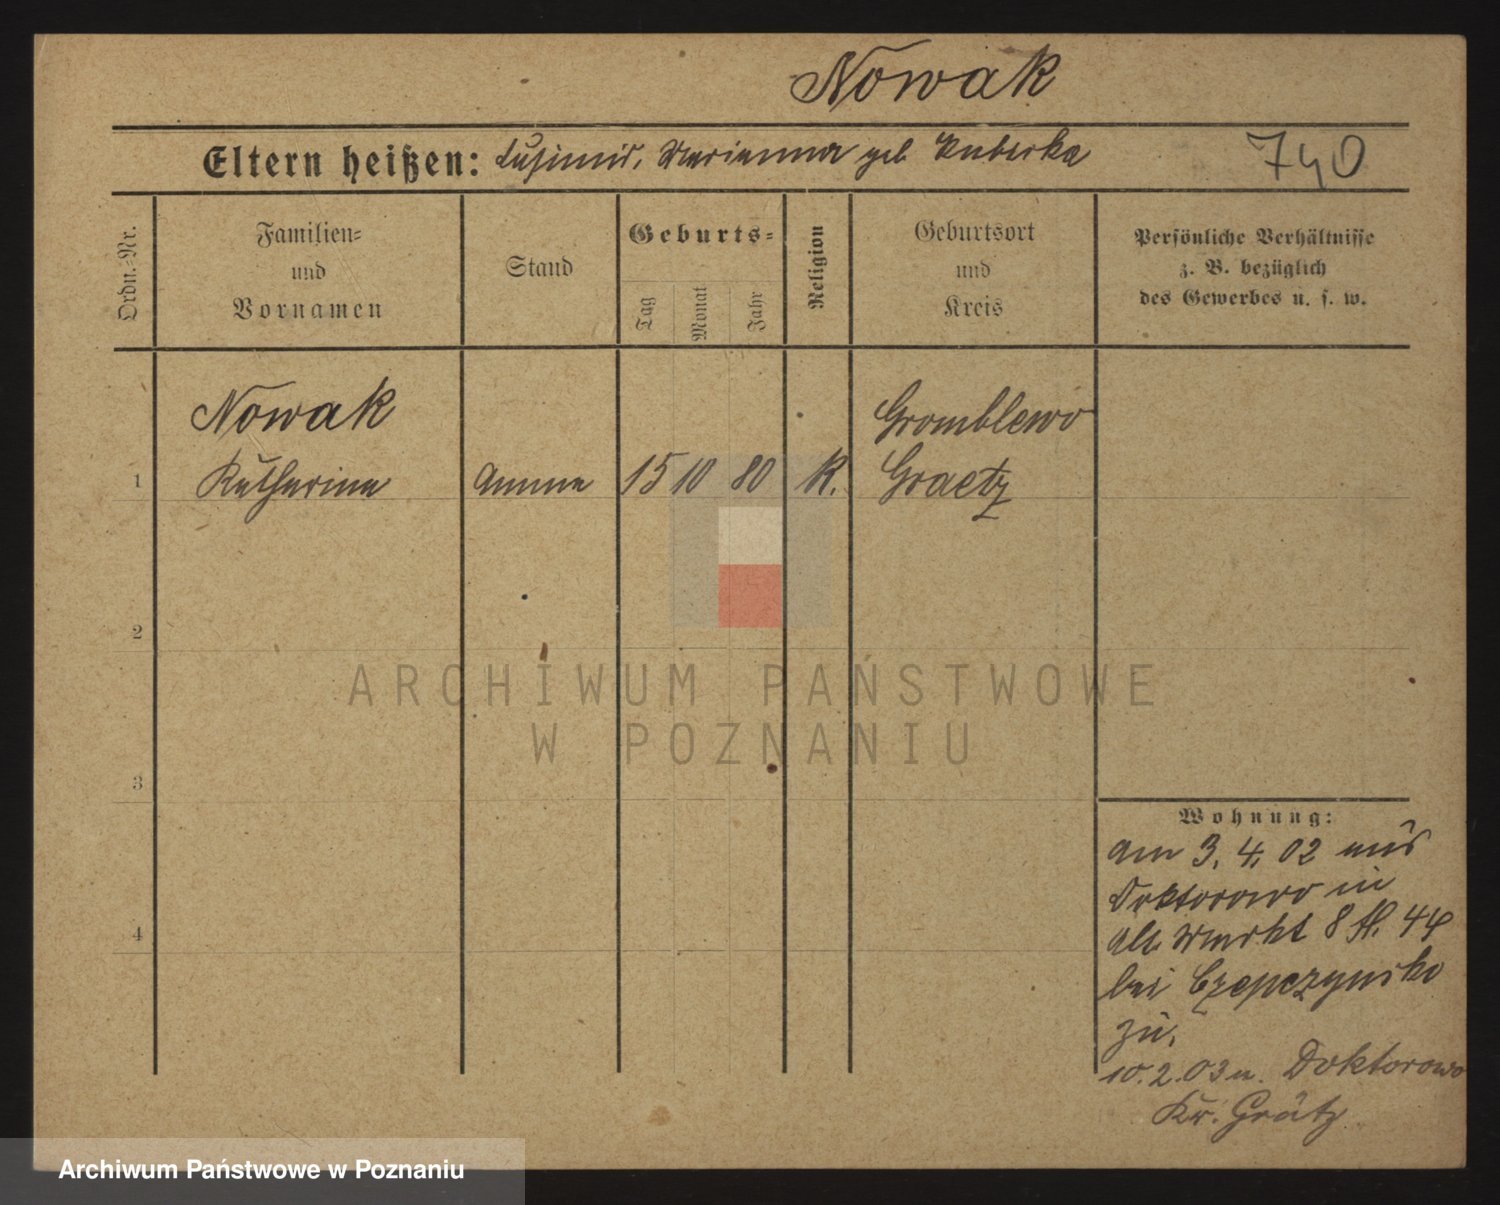 Nowak
Eltern heißen: Casimir, Marianna geb Kuberka
740
Ordn.-Nr.
Familien-
und
Vornamen
Stand
Geburts-
Tag
Monat
Jahr
Religion
Geburtsort
und
Kreis
Persönliche Verhältnisse
z. B. bezüglich
des Gewerbes u. s. w.
Nowak
Gromblewo
1 Katharina Amme 15 10 80 K. Graetz
2
ARCHIWUM PAŃSTWOWE
W POZNANIU
3
4
Wohnung:
am 3. 4. 02 aus
Doktorowo in
Alt. Markt 8 44
bei Czepczynsko
zu.
10. 2. 03 n. Doktorowo
Kr. Grätz
Archiwum Państwowe w Poznaniu